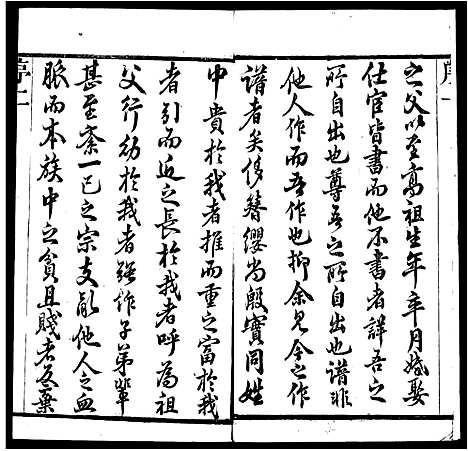 序一
之父以至高祖生年卒月婚娶
仕宦皆書而他不書者詳吾之
所自出也尊吾之所自出也譜非
他人作而吾作也抑余見今之作
譜者矣侈簪纓尚殷實同姓
中貴於我者推而重之富於我
者引而近之長於我者呼為祖
父行幼於我者強作子弟輩
甚至紊一己之宗支亂他人之血
脈而本族中之貧且賤者反棄
序二